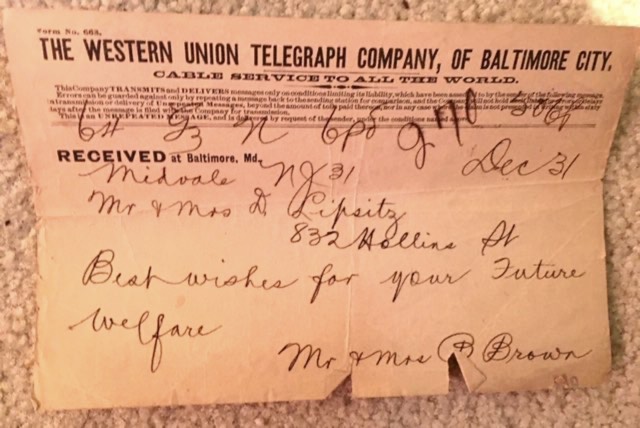 Form No. 663.
THE WESTERN UNION TELEGRAPH COMPANY, OF BALTIMORE CITY.
CABLE SERVICE TO ALL THE WORLD.
This Company TRANSMITS and DELIVERS messages only on conditions limiting its liability, which have been assented to by the sender of the following message.
Errors can be guarded against only by repeating a message back to the sending station for comparison, and the Company will not hold
transmission or delivery of Unrepeated Messages, beyond the amount of
days after the message is filed with the Company for transmission.
This is an UNREPEATED MESSAGE, and is delivered by request of the sender, under the conditions named above.
N 6pd 970
RECEIVED at Baltimore, Md. Dec 31
Midvale NJ 31
Mr & Mrs D. Lipsitz
832 Hollins St
Best wishes for your Future
welfare
Mr & Mrs B Brown